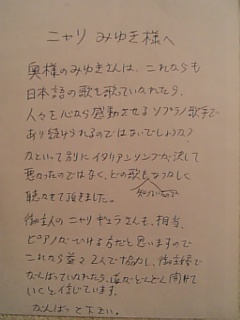 ニャリ みゆき様へ
奥様のみゆきさんは、これからも
日本語の歌を歌っていかれたら、
人々を心から感動させるソプラノ歌手で
あり続けられるのではないでしょうか?
かといって別にイタリアンソングが決して
悪かったのではなく、どの歌もうつくしく
聴かせて頂きました。
御主人のニャリ ギュラさんも、相当、
ピアノがひける方だと思いますので
これから益々2人で協力し、御主様で
がんばっていかれたら、道がどんどん開けて
いくと信じています。
がんばって下さい。